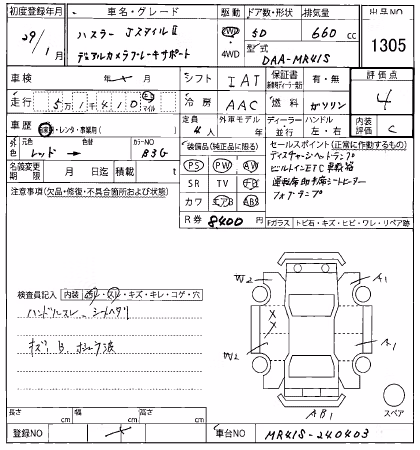 初度登録年月
29/1月
車名・グレード
ハスラー JスタイルⅡ
デュアルカメラブレーキサポート
駆動 ドア数・形状 排気量
2WD 4WD
5D
660 cc
型式
DAA-MR41S
出品NO
1305
車検 年 月
シフト IAT
保証書 有・無
評価点
4
走行 5万1410 キロ マイル
冷房 AAC
燃料 ガソリン
車歴 自家用・レンタ・事業用( )
定員 4人
外車モデル 年
ディーラー 並行
ハンドル 左・右
内装評価 C
外色 元色 レッド → 色替
カラーNO B3G
名義変更期限 月 日迄 積載 t
注意事項(欠品・修復・不具合箇所および状態)
装備品(純正品に限る)
PS PW AW
SR TV ナビ
カワ エアB ABS
R券 8400 円
セールスポイント(正常に作動するもの)
ディスチャージヘッドランプ
ビルトインETC車載器
運転席助手席シートヒーター
フォグランプ
Fガラス トビ石・キズ・ヒビ・ワレ・リペア跡
検査員記入 内装 ヨゴレ・スレ・キズ・キレ・コゲ・穴
ハンドルスレ シートヘタリ
キズ、B、ボシュウ波
W2
A1
W2
A1
AB1
スペア
長さ cm
幅 cm
高さ cm
登録NO
車台NO MR41S-240403